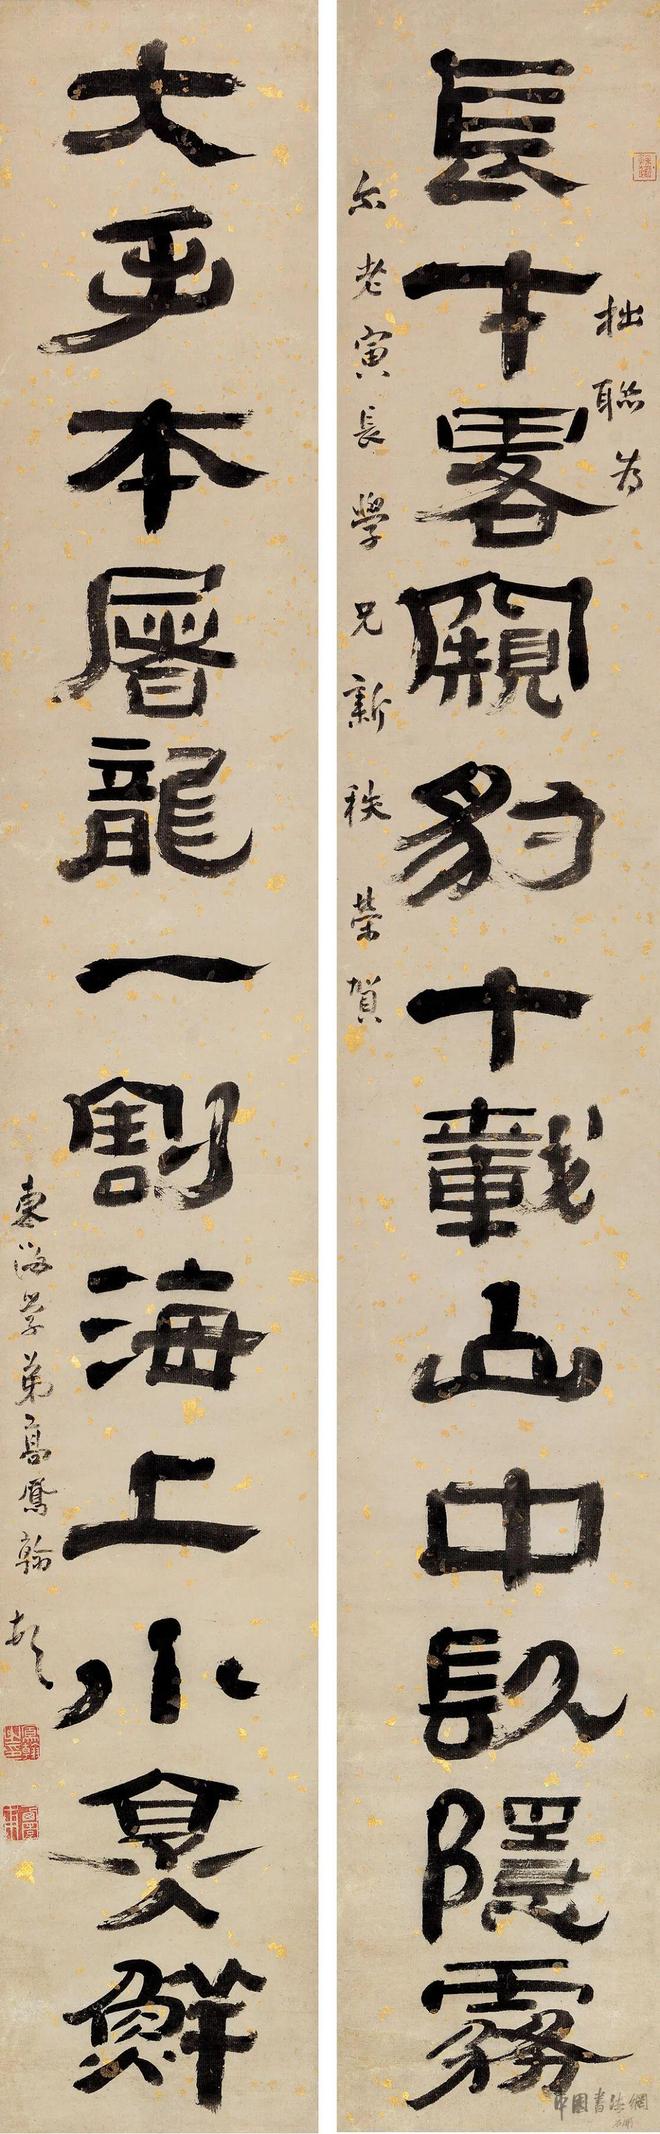 拙聯為
長才畧窺豹十載山中镹隱霧
老寅長學兄新秩榮賀
大手本屠龍一割海上小烹鮮
東海學弟高鳳翰
中國書法網